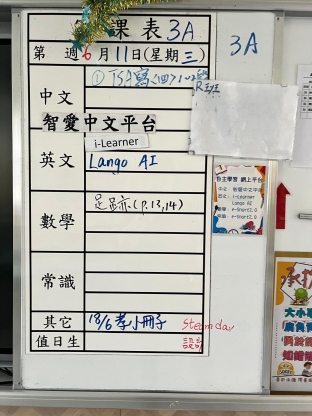 課表 3A
第 週 6月11日(星期三)
3A
中文
① TSA寫(四)1-2段
R班
智愛中文平台
i-Learner
英文
Lango AI
自主學習 網上平台
中文: 智愛中文平台
i-Learner
Lango AI
數學
足跡(P.13,14)
常識
其它
18/6 孝小冊子
Steam day
值日生
承
大小